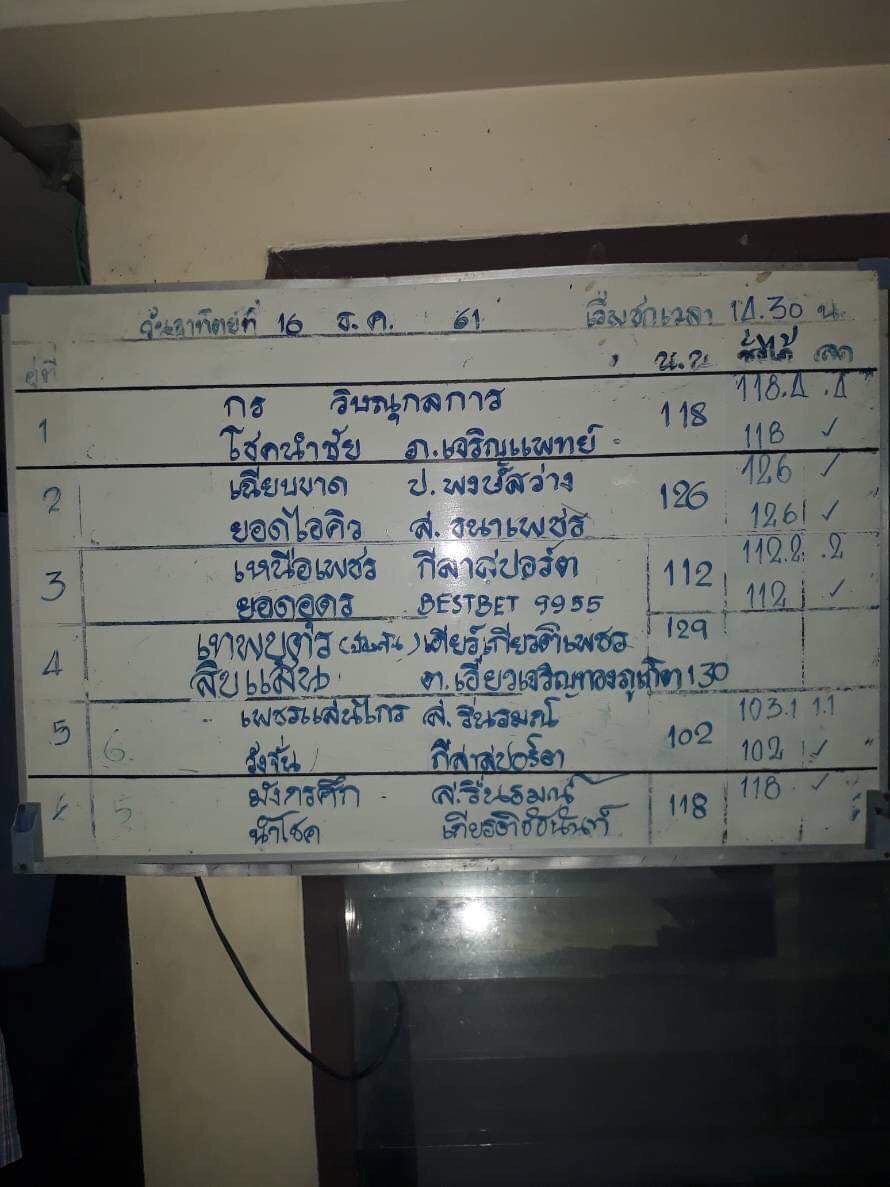 วันอาทิตย์ที่ 16 ธ.ค. 61 เริ่มชกเวลา 14.30 น.
คู่ที่ น.น. ชั่งได้ ลด
1 กร วิษณุกลการ 118 118.4 .4
โชคนำชัย ภ.เจริญแพทย์ 118 ✓
2 เฉียบขาด ป.พงษ์สว่าง 126 126 ✓
ยอดไอคิว ส.ธนาเพชร 126 ✓
3 เหนือเพชร กีลาสปอร์ต 112 112.2 .2
ยอดอุดร BESTBET 9955 112 ✓
4 เทพบุตร เตี่ยรุ่งเกียรติเพชร 129
สิบแสน ต.เฮี่ยวเจริญทองภูเก็ต 130
5 6. เพชรแสนไกร ส.รื่นรมณ์ 102 103.1 1.1
วังจั่น กีลาสปอร์ต 102 ✓
5 มังกรศึก ส.รื่นรมณ์ 118 118 ✓
นำโชค เกียรติชัชนันท์